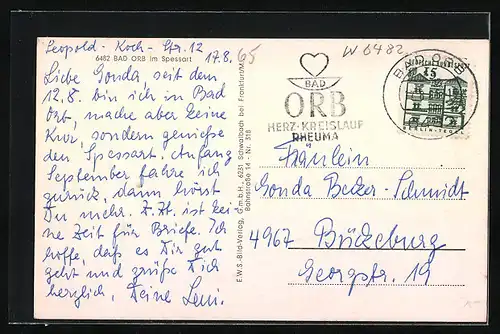 Leopold-Koch-Str. 12
6482 BAD ORB im Spessart
17.8.65
Liebe Gonda, seit dem
12.8. bin ich in Bad
Orb, mache aber keine
Kur, sondern genieße
den Spessart. Anfang
September fahre ich
zurück, dann hörst
Du mehr. Z. Zt. ist kei-
ne Zeit für Briefe. Ich
hoffe, daß es Dir gut
geht und grüße Dich
herzlich, Deine Leni.
E.W.S.-Bild-Verlag, G.m.b.H., 6231 Schwalbach bei Frankfurt/M
Bahnstraße 14 - Nr. 318
W 6482
BAD
ORB
HERZ-KREISLAUF
RHEUMA
BAD ORB
15
Fräulein
Gonda Becker-Schmidt
4967 Bückeburg
Georgstr. 19